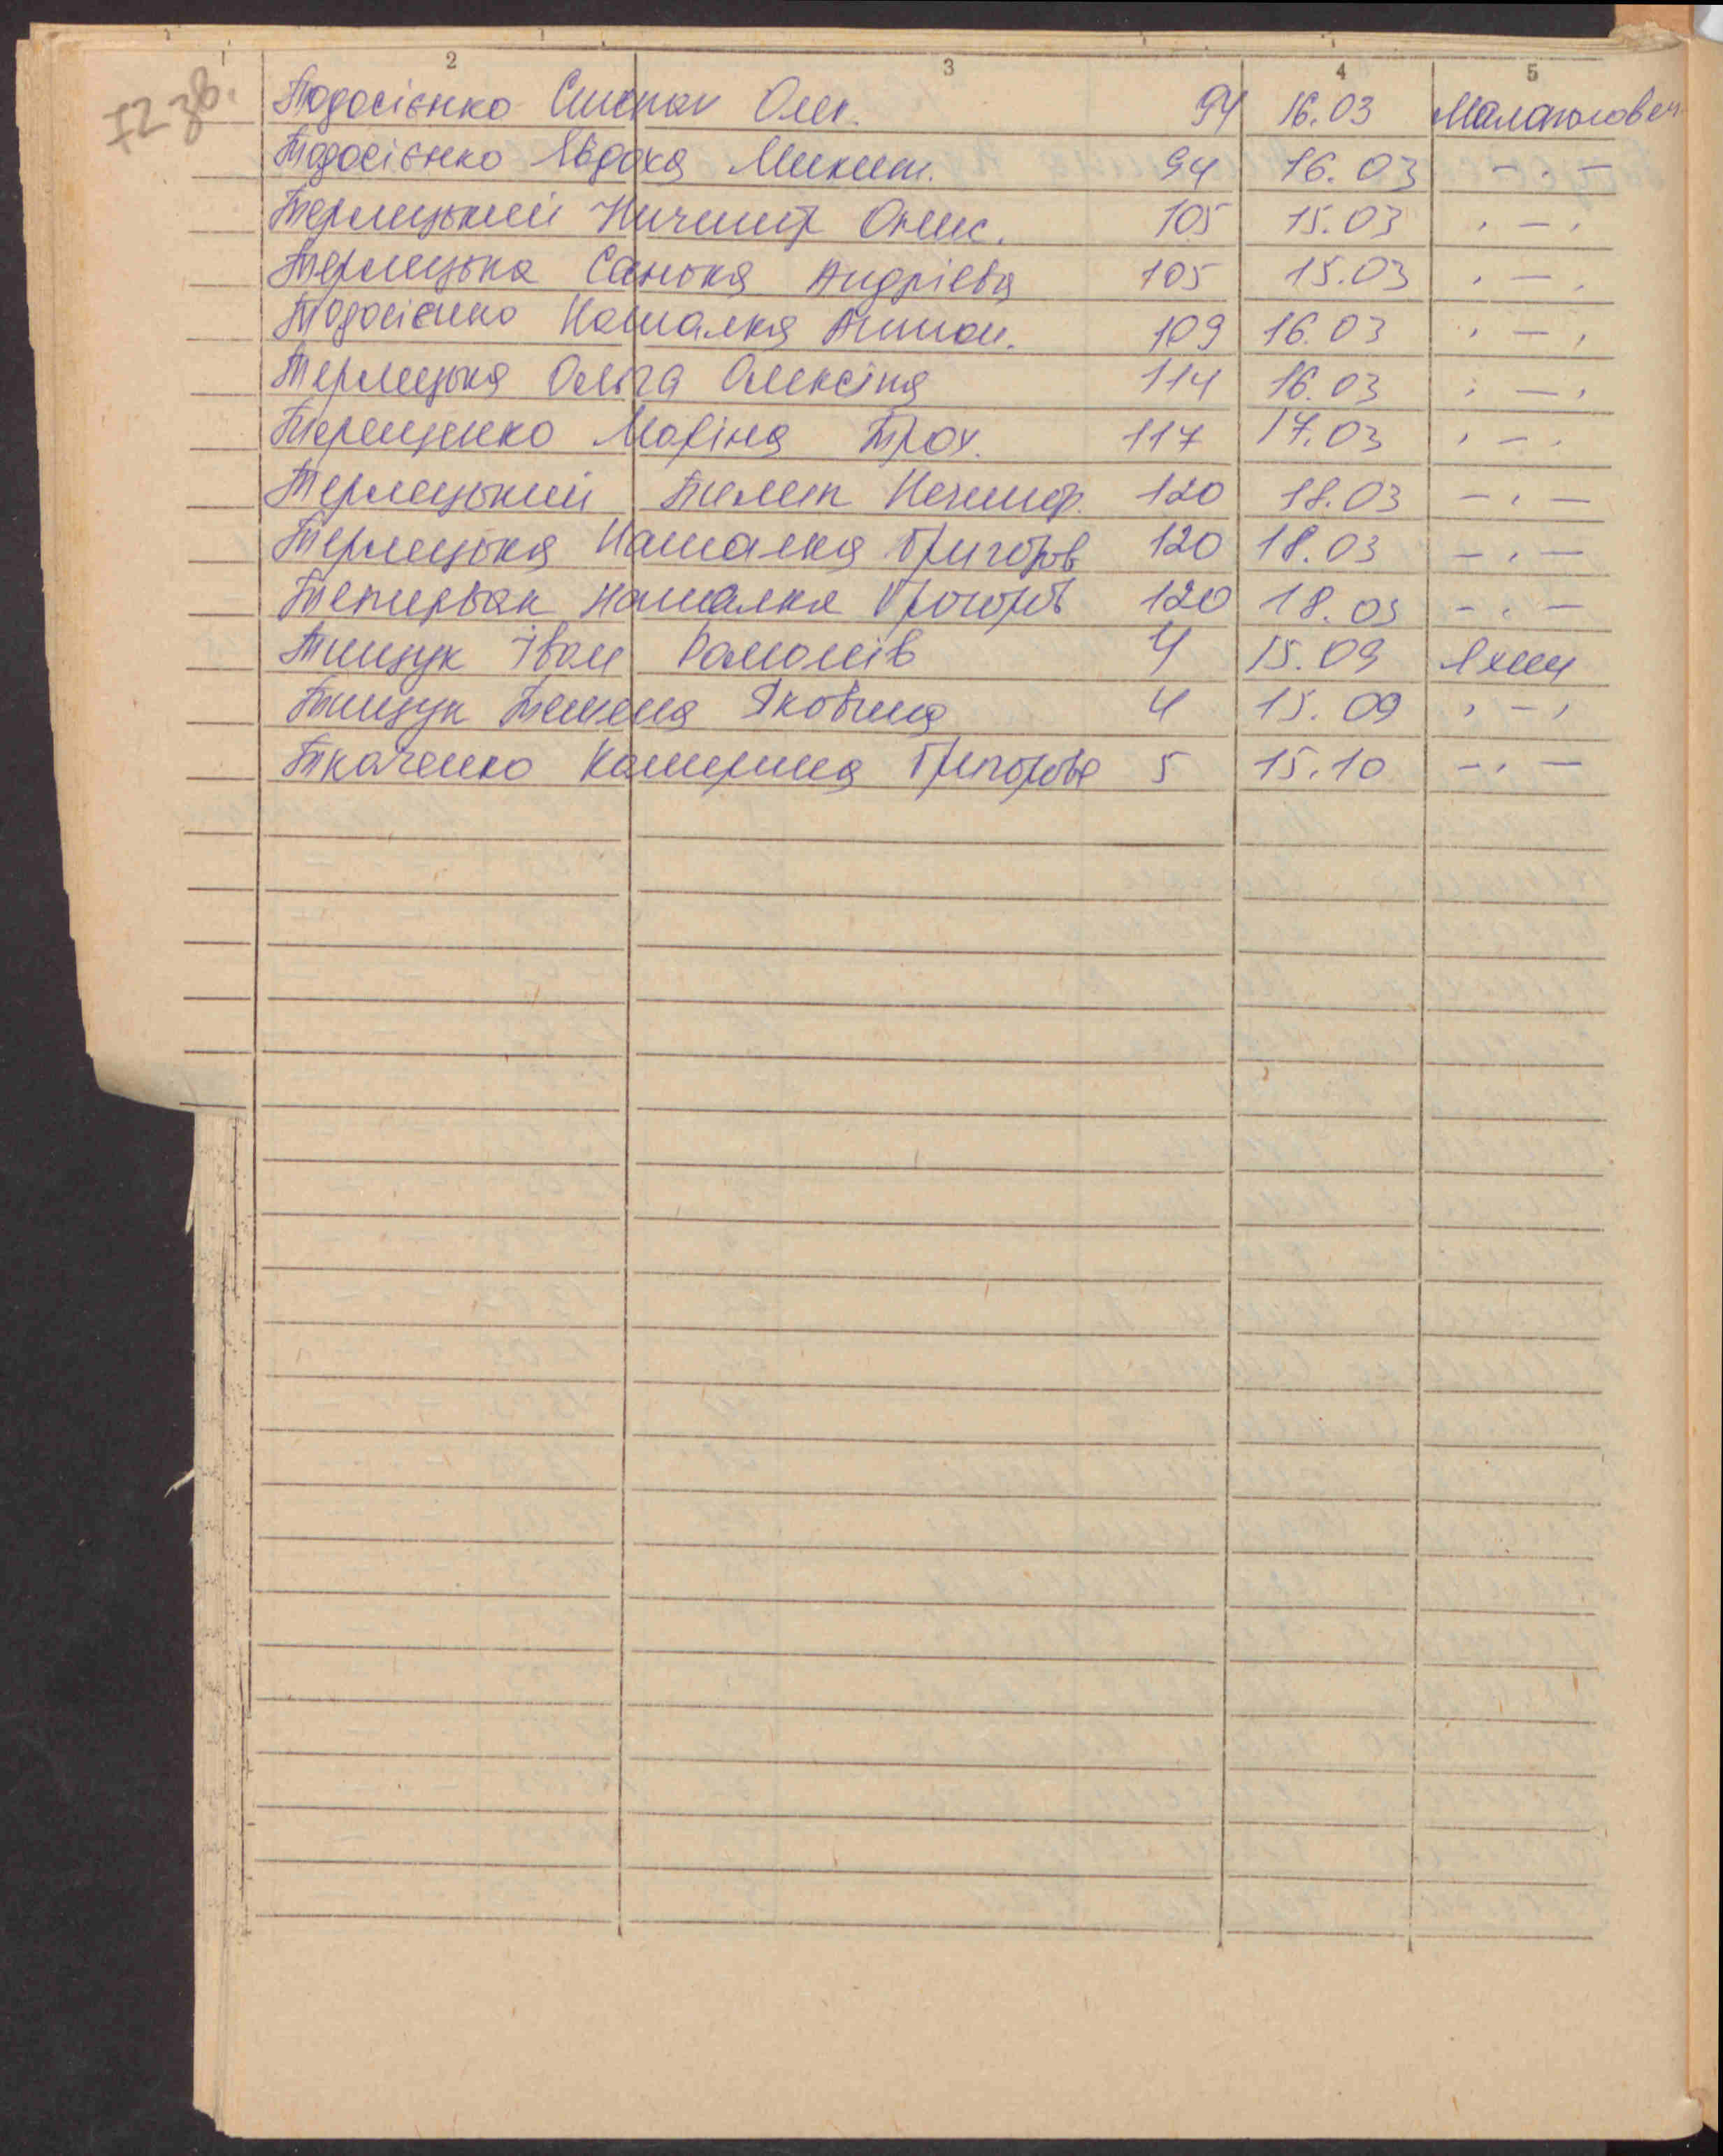 1 2 3 4 5
72 зв.
Тодосієнко Степан Олек. 94 16.03
Тодосієнко Явдоха Микит. 94 16.03 – . –
Терлицький Ничипір Олек. 105 15.03 . – .
Терлицька Санька Андрієва 105 15.03 . – .
Тодосієнко Наталка Антон. 109 16.03 . – .
Терлицька Ольга Олексіна 114 16.03 . – .
Терещенко Маріна Трох. 117 17.03 . – .
Терлецький Пилип Нечипор. 120 18.03 – . –
Терлицька Наталка Григоров 120 18.03 – . –
Наталка Григорів 120 18.03 – . –
Тищук Іван 4 15.09
Тищук Яковина 4 15.09 . – .
Ткаченко Катерина Григорове 5 15.10 – . –